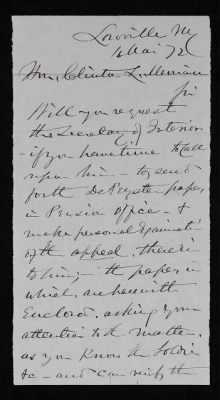 Lowville N
16 Mai 72
Hon, Clinton L. Merriam
Sir
Will you request
the Secretary of Interior
- if you have time to call
upon him - to send
for the De Peyster papers,
in Pension office - &
make personal Examinati
of the appeal, therein
to him; - the papers in
which, are herewith
Enclosed. asking your
attention to the matter,
as you Know the Soldier
&c - and can verify the